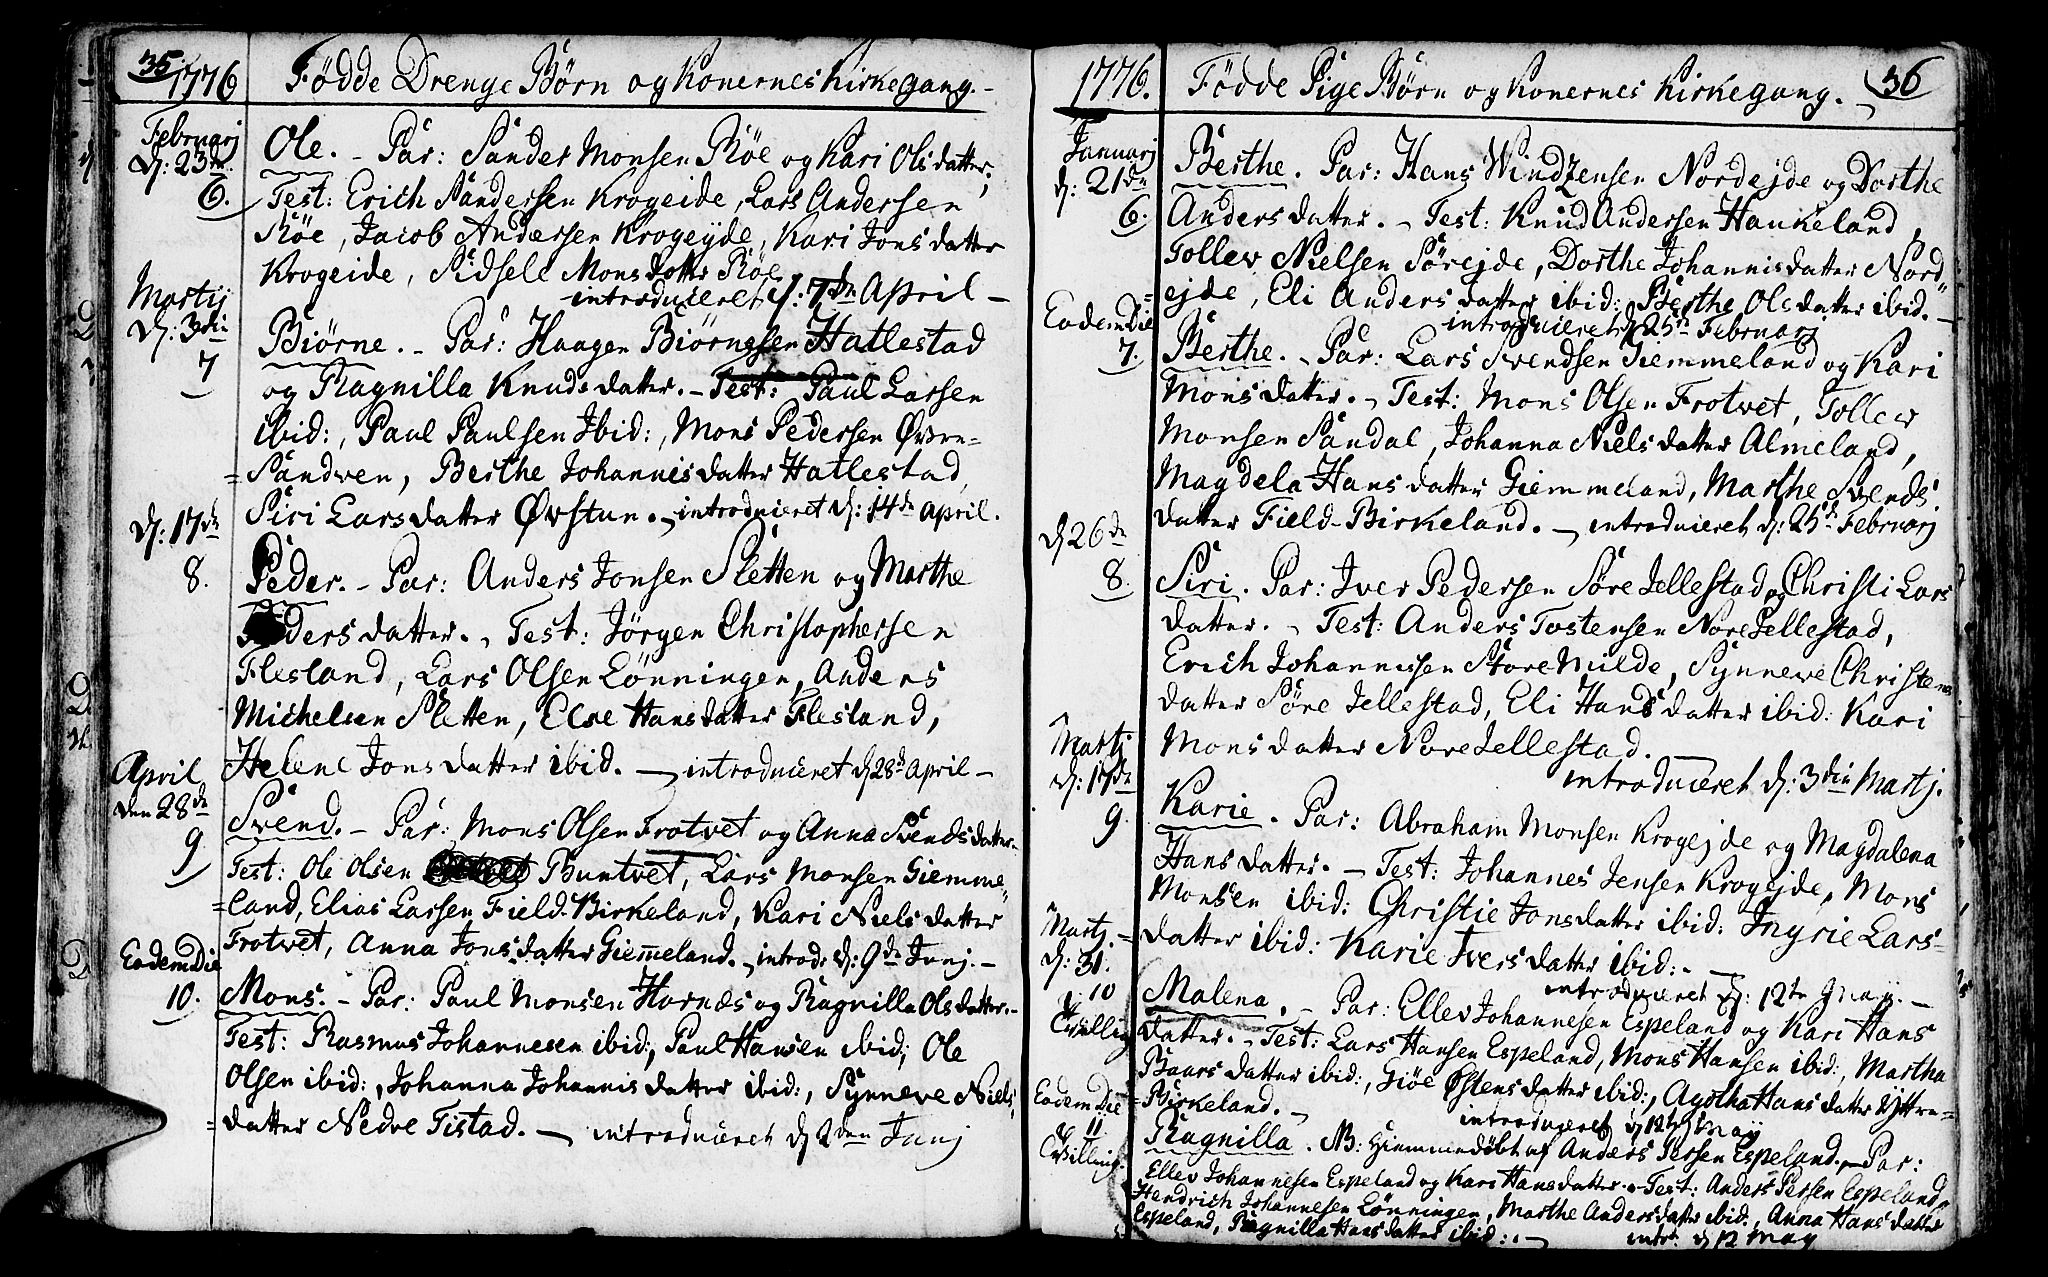 35 1776 Födde Drenge Börn og Konernes Kirkegang. -
Februarj
d: 23de
6.
Ole. - Par: Sander Monsen Röe og Kari Olsdatter,
Test: Erich Sandersen Krogeide, Lars Andersen
Röe, Jacob Andersen Krogejde, Kari Jonsdatter
Krogeide, Sidsele Monsdatter Röe
introduceret d: 7de April -
Martij
d: 3die
7
Biørne. - Par: Haagen Biørnesen Hatlestad
og Ragnilla Knudsdatter. - Test: Paul Larsen
ibid:, Paul Paulsen Ibid:, Mons Pedersen Øvre-
=Sandven, Berthe Johannisdatter Hatlestad,
Siri Larsdatter Øvstun. - introduceret d: 14de April.
d: 17de
8.
Peder. - Par: Anders Jonsen Sletten og Marthe
Pedersdatter. - Test: Jörgen Christophersen
Flesland, Lars Olsen Lönningen, Anders
Michelsen Sletten, Else Hansdatter Flesland,
Helene Jonsdatter ibid. - introduceret d 28de April -
April
den 28de
9
Svend. - Par: Mons Olsen Frotvet og Anna Svendsdatter.
Test: Ole Olsen Buntvet, Lars Monsen Giemme-
=land, Elias Larsen Field-Birkeland, Kari Nielsdatter
Frotvet, Anna Jonsdatter Giemeland. - introd: d: 9de Junj. -
Eodem Die
10.
Mons. - Par: Paul Monsen Hornæs og Ragnilla Olsdatter. -
Test: Rasmus Johannesen ibid:, Paul Hansen ibid:, Ole
Olsen ibid:, Johanna Johannisdatter ibid:, Synneve Niels
=datter Nedre Tistad. - introduceret d 2den Junj
1776. Födde Pige Börn og Konernes Kirkegang. - 36
Januarj
d: 21de
6.
Berthe. Par: Hans Windzensen Nordejde og Dorthe
Andersdatter. - Test: Knud Andersen Haukeland,
Tollev Nielsen Sørejde, Dorthe Johannisdatter Nord
=ejde, Eli Andersdatter ibid: Berthe Olsdatter ibid. -
introduceret d 25de Februarj
Eodem Die
7.
Berthe. - Par: Lars Svendsen Giemmeland og Kari
Monsdatter. - Test: Mons Olsen Frotvet, Tollev
Monsen Sandal, Johanna Nielsdatter Almeland,
Magdela Hansdatter Giemmeland, Marthe Svends
datter Field-Birkeland. - introduceret d: 25de Februarj
d 26de
8.
Siri. Par: Iver Pedersen Söre Jellestad og Christi Lars
datter. - Test: Anders Tostensen Nore Jellestad,
Erich Johannessen Store Milde, Synneve Christens
datter Söre Jellestad, Eli Hansdatter ibid: Kari
Monsdatter Nore Jellestad. -
introduceret d: 3die Martj.
Martj
d: 17de
9.
Karie. Par: Abraham Monsen Krogejde og Magdalena
Hansdatter. - Test: Johannes Jensen Krogejde, Mons
Monsen ibid: Christie Jonsdatter ibid: Ingrie Lars-
datter ibid: Karie Iversdatter ibid: -
introduceret d: 12te Maij. -
Martj.
d: 31.
10
Tvilling
Malena. - Par: Ellev Johannesen Espeland og Kari Hans
datter. - Test: Lars Hansen Espeland, Mons Hansen ibid:, Martha
Baarsdatter ibid:, Giøe Østensdatter ibid:, Agotha Hansdatter Yttre-
=Birkeland. -
introduceret d 12te Maij
Eodem Die
11.
Tvilling.
Ragnilla. NB: Hiemmedöbt af Anders Persen Espeland. - Par:
Ellev Johannesen Espeland og Kari Hansdatter. - Test: Anders Persen Espeland,
Hendrich Johannesen Lönningen, Marthe Andersdatter ibid:, Anna Hansdatter
Espeland, Ragnilla Hansdatter ibid: -
intr: d 12 May